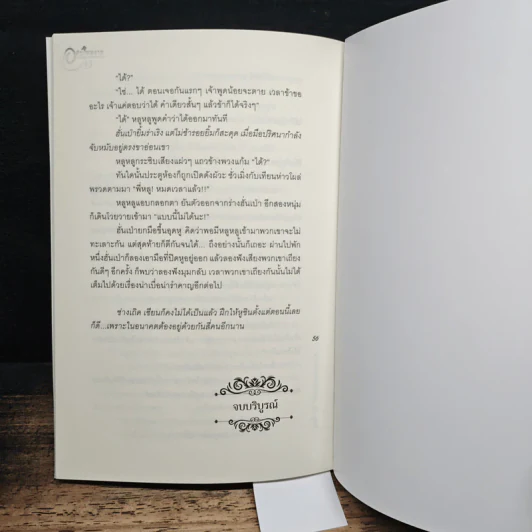 "ได้?"
"ใช่... ได้ ตอนเจอกันแรกๆ เจ้าพูดน้อยจะตาย เวลาข้าขอ
อะไร เจ้าแค่ตอบว่าได้ คำเดียวสั้นๆ แล้วข้าก็ได้จริงๆ"
"ได้" หลูหลูพูดคำว่าได้ออกมาทันที
ฮั่นเป่ายิ้มร่าเริง แต่ไม่ช้ารอยยิ้มก็สะดุด เมื่อมือปริศนากำลัง
จับหมับอยู่ตรงขาอ่อนเขา
หลูหลูกระซิบเสียงแผ่วๆ แถวข้างพวงแก้ม "ได้?"
ทันใดนั้นประตูห้องก็ถูกเปิดดังผัวะ ชิวเมิงกับเทียนห่าวโผล่
พรวดตามมา "พี่หลู! หมดเวลาแล้ว!!"
หลูหลูแอบกลอกตา ยันตัวออกจากร่างฮั่นเป่า อีกสองหนุ่ม
ก็เดินโวยวายเข้ามา "แบบนี้ไม่ได้นะ!"
ฮั่นเป่ายกมือขึ้นอุดหู คิดว่าพอมีหลูหลูเข้ามาพวกเขาจะไม่
ทะเลาะกัน แต่สุดท้ายก็ตีกันจนได้... ถึงอย่างนั้นก็เถอะ ผ่านไปพัก
หนึ่งฮั่นเป่าก็ลองเอามือที่ปิดหูอยู่ออก แล้วลองฟังเสียงพวกเขาเถียง
กันดีๆ อีกครั้ง ก็พบว่าลองฟังมุมกลับ เวลาพวกเขาเถียงกันนั้นไม่ได้
เต็มไปด้วยเรื่องน่าเบื่อน่ารำคาญอีกต่อไป
ช่างเถิด เซียนก็คงไม่ได้เป็นแล้ว ฝึกให้หูชินตั้งแต่ตอนนี้เลย
ก็ดี...เพราะในอนาคตต้องอยู่ด้วยกันสี่คนอีกนาน
จบบริบูรณ์